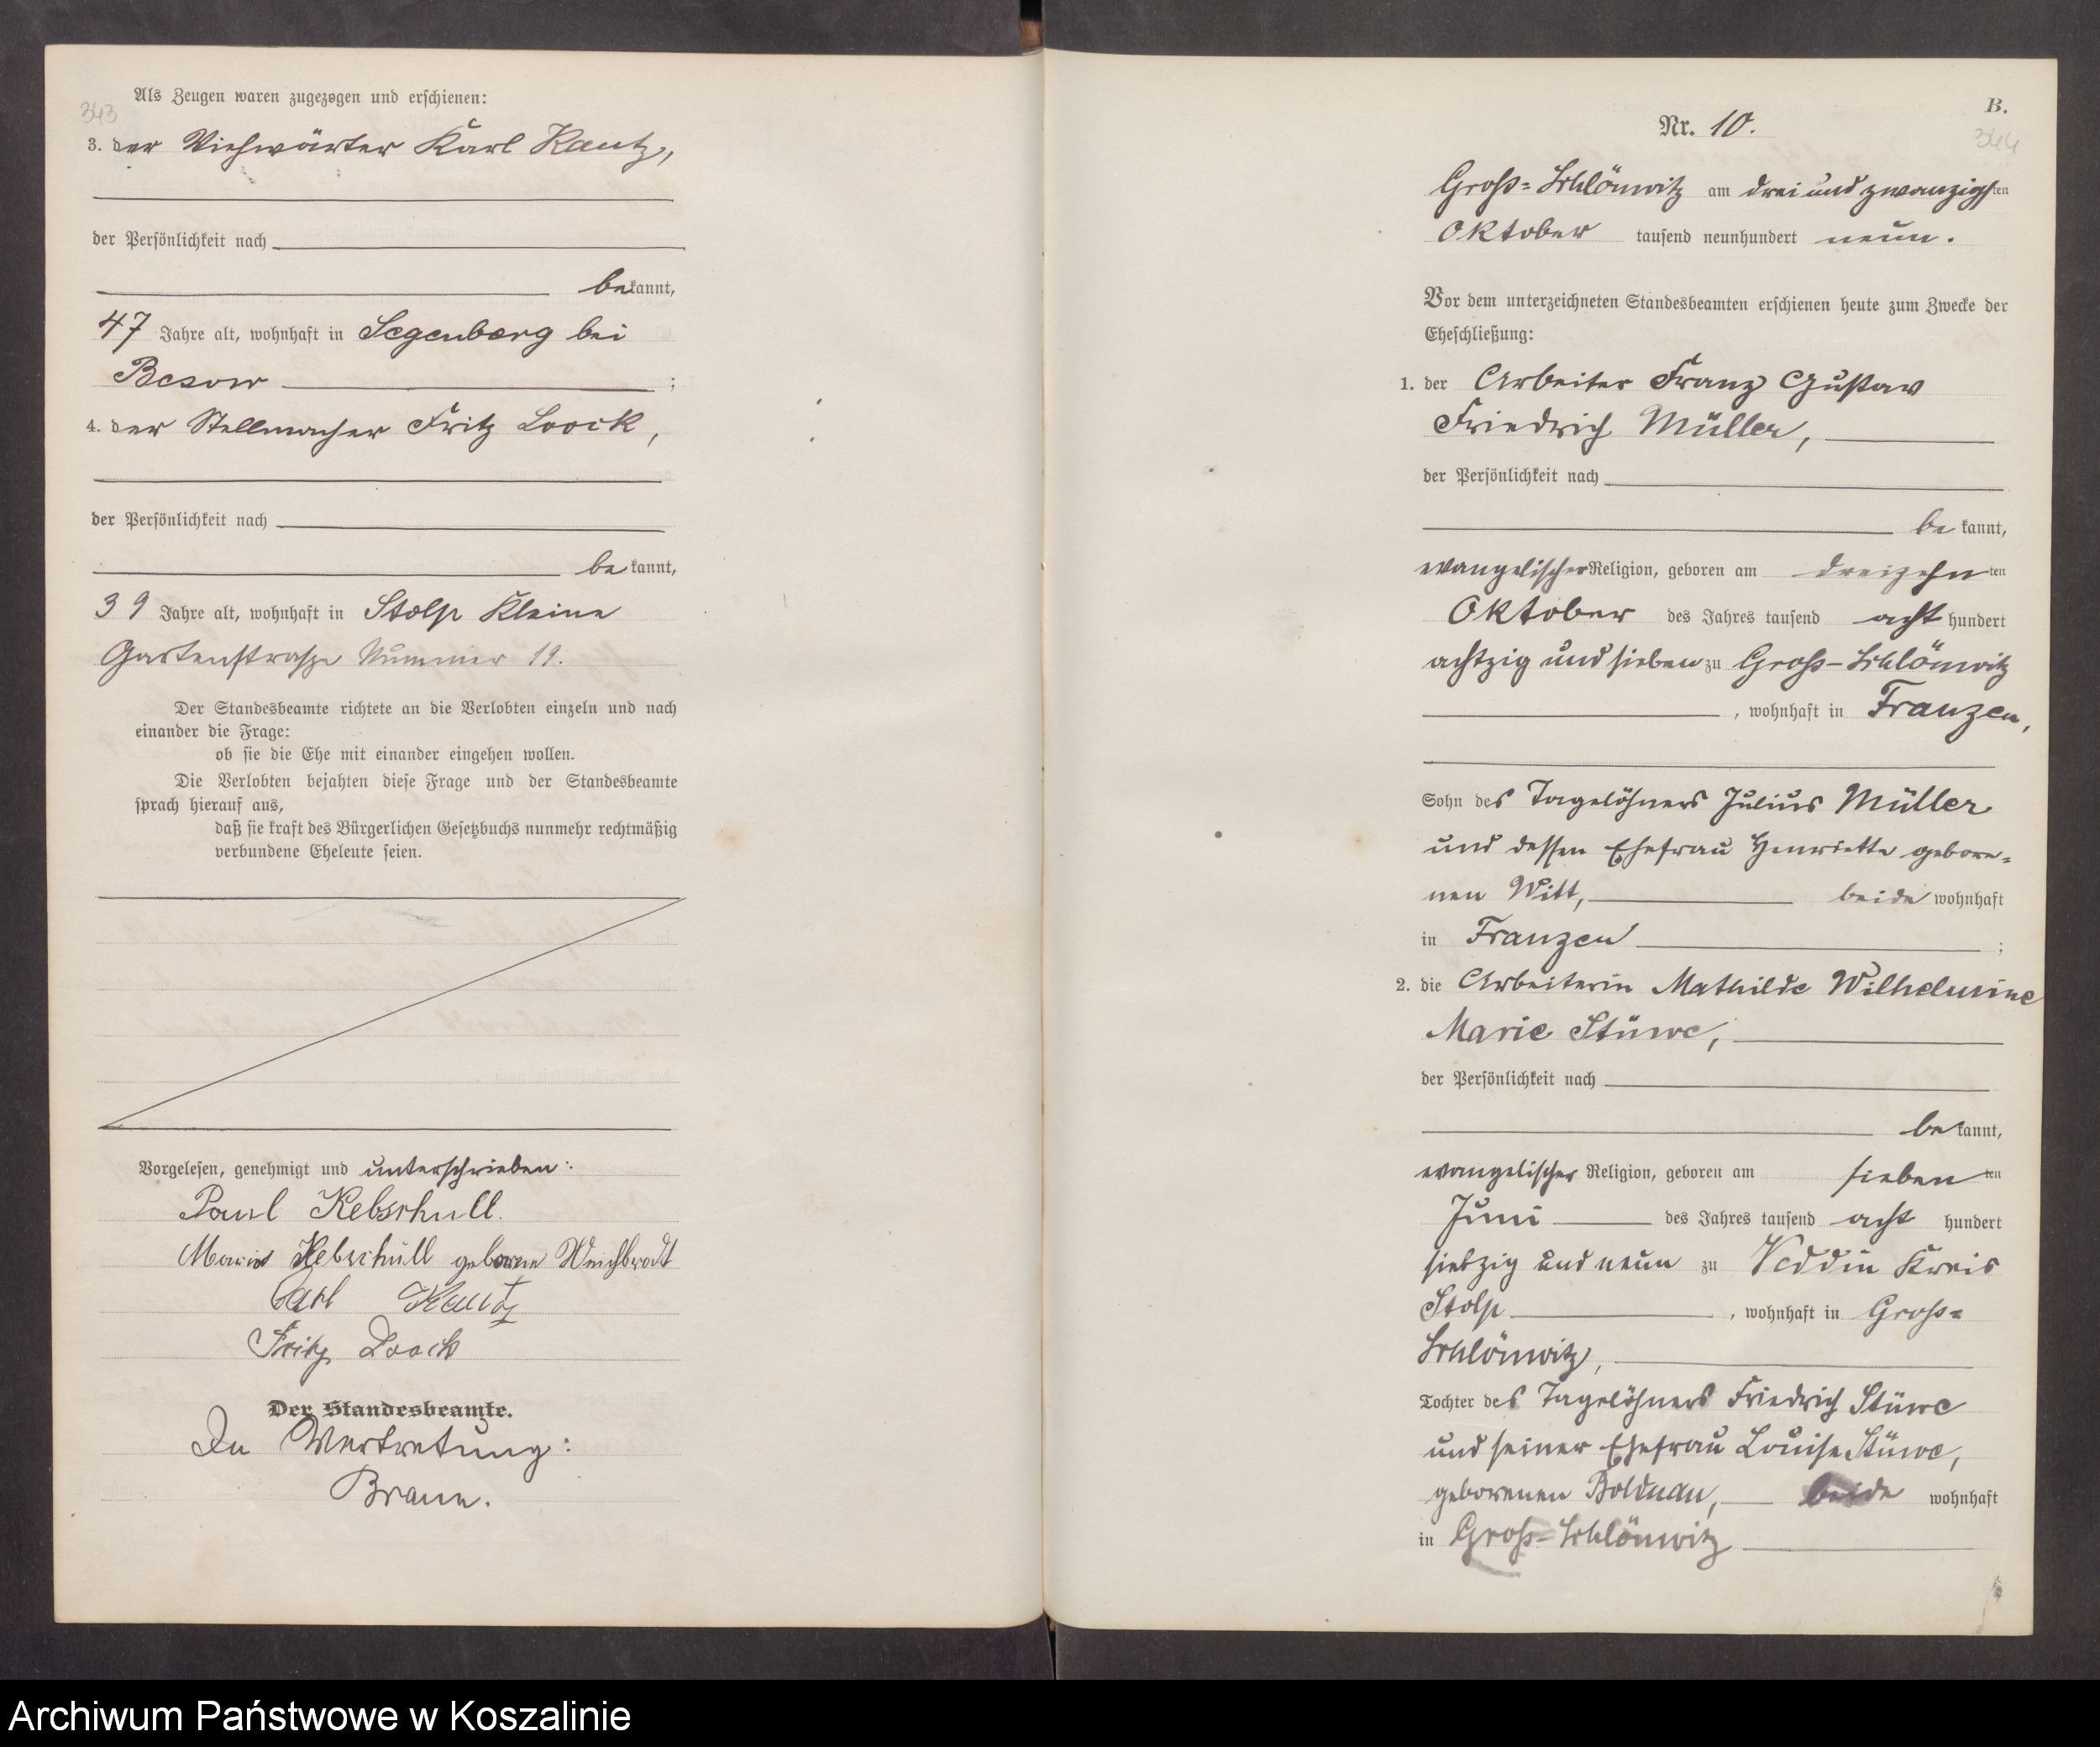 343
Als Zeugen waren zugezogen und erschienen:
3. der Viehwärter Karl Kautz,
der Persönlichkeit nach
bekannt,
47 Jahre alt, wohnhaft in Segenberg bei
Besow ;
4. der Stellmacher Fritz Loock,
der Persönlichkeit nach
be kannt,
39 Jahre alt, wohnhaft in Stolp Kleine
Gartenstraße Nummer 19.
Der Standesbeamte richtete an die Verlobten einzeln und nach
einander die Frage:
ob sie die Ehe mit einander eingehen wollen.
Die Verlobten bejahten diese Frage und der Standesbeamte
sprach hierauf aus,
daß sie kraft des Bürgerlichen Gesetzbuchs nunmehr rechtmäßig
verbundene Eheleute seien.
Vorgelesen, genehmigt und unterschrieben:
Paul Kebschull.
Marie Kebschull geborene Weichbrodt
Carl Kautz
Fritz Loock
Der Standesbeamte.
In Vertretung:
Braun.
B.
344
Nr. 10.
Groß-Schlönwitz am drei und zwanzigsten
Oktober tausend neunhundert neun.
Vor dem unterzeichneten Standesbeamten erschienen heute zum Zwecke der
Eheschließung:
1. der Arbeiter Franz Gustav
Friedrich Müller,
der Persönlichkeit nach
be kannt,
evangelischer Religion, geboren am dreizehnten
Oktober des Jahres tausend acht hundert
achtzig und sieben zu Groß-Schlönwitz
, wohnhaft in Franzen,
Sohn des Tagelöhners Julius Müller
und dessen Ehefrau Henriette gebore-
nen Witt, beide wohnhaft
in Franzen ;
2. die Arbeiterin Mathilde Wilhelmine
Marie Stüwe,
der Persönlichkeit nach
bekannt,
evangelischer Religion, geboren am siebenten
Juni des Jahres tausend acht hundert
siebzig und neun zu Veddin Kreis
Stolp , wohnhaft in Groß-
Schlönwitz,
Tochter des Tagelöhners Friedrich Stüwe
und seiner Ehefrau Louise Stüwe,
geborenen Bolduan, beide wohnhaft
in Groß-Schlönwitz
Archiwum Państwowe w Koszalinie